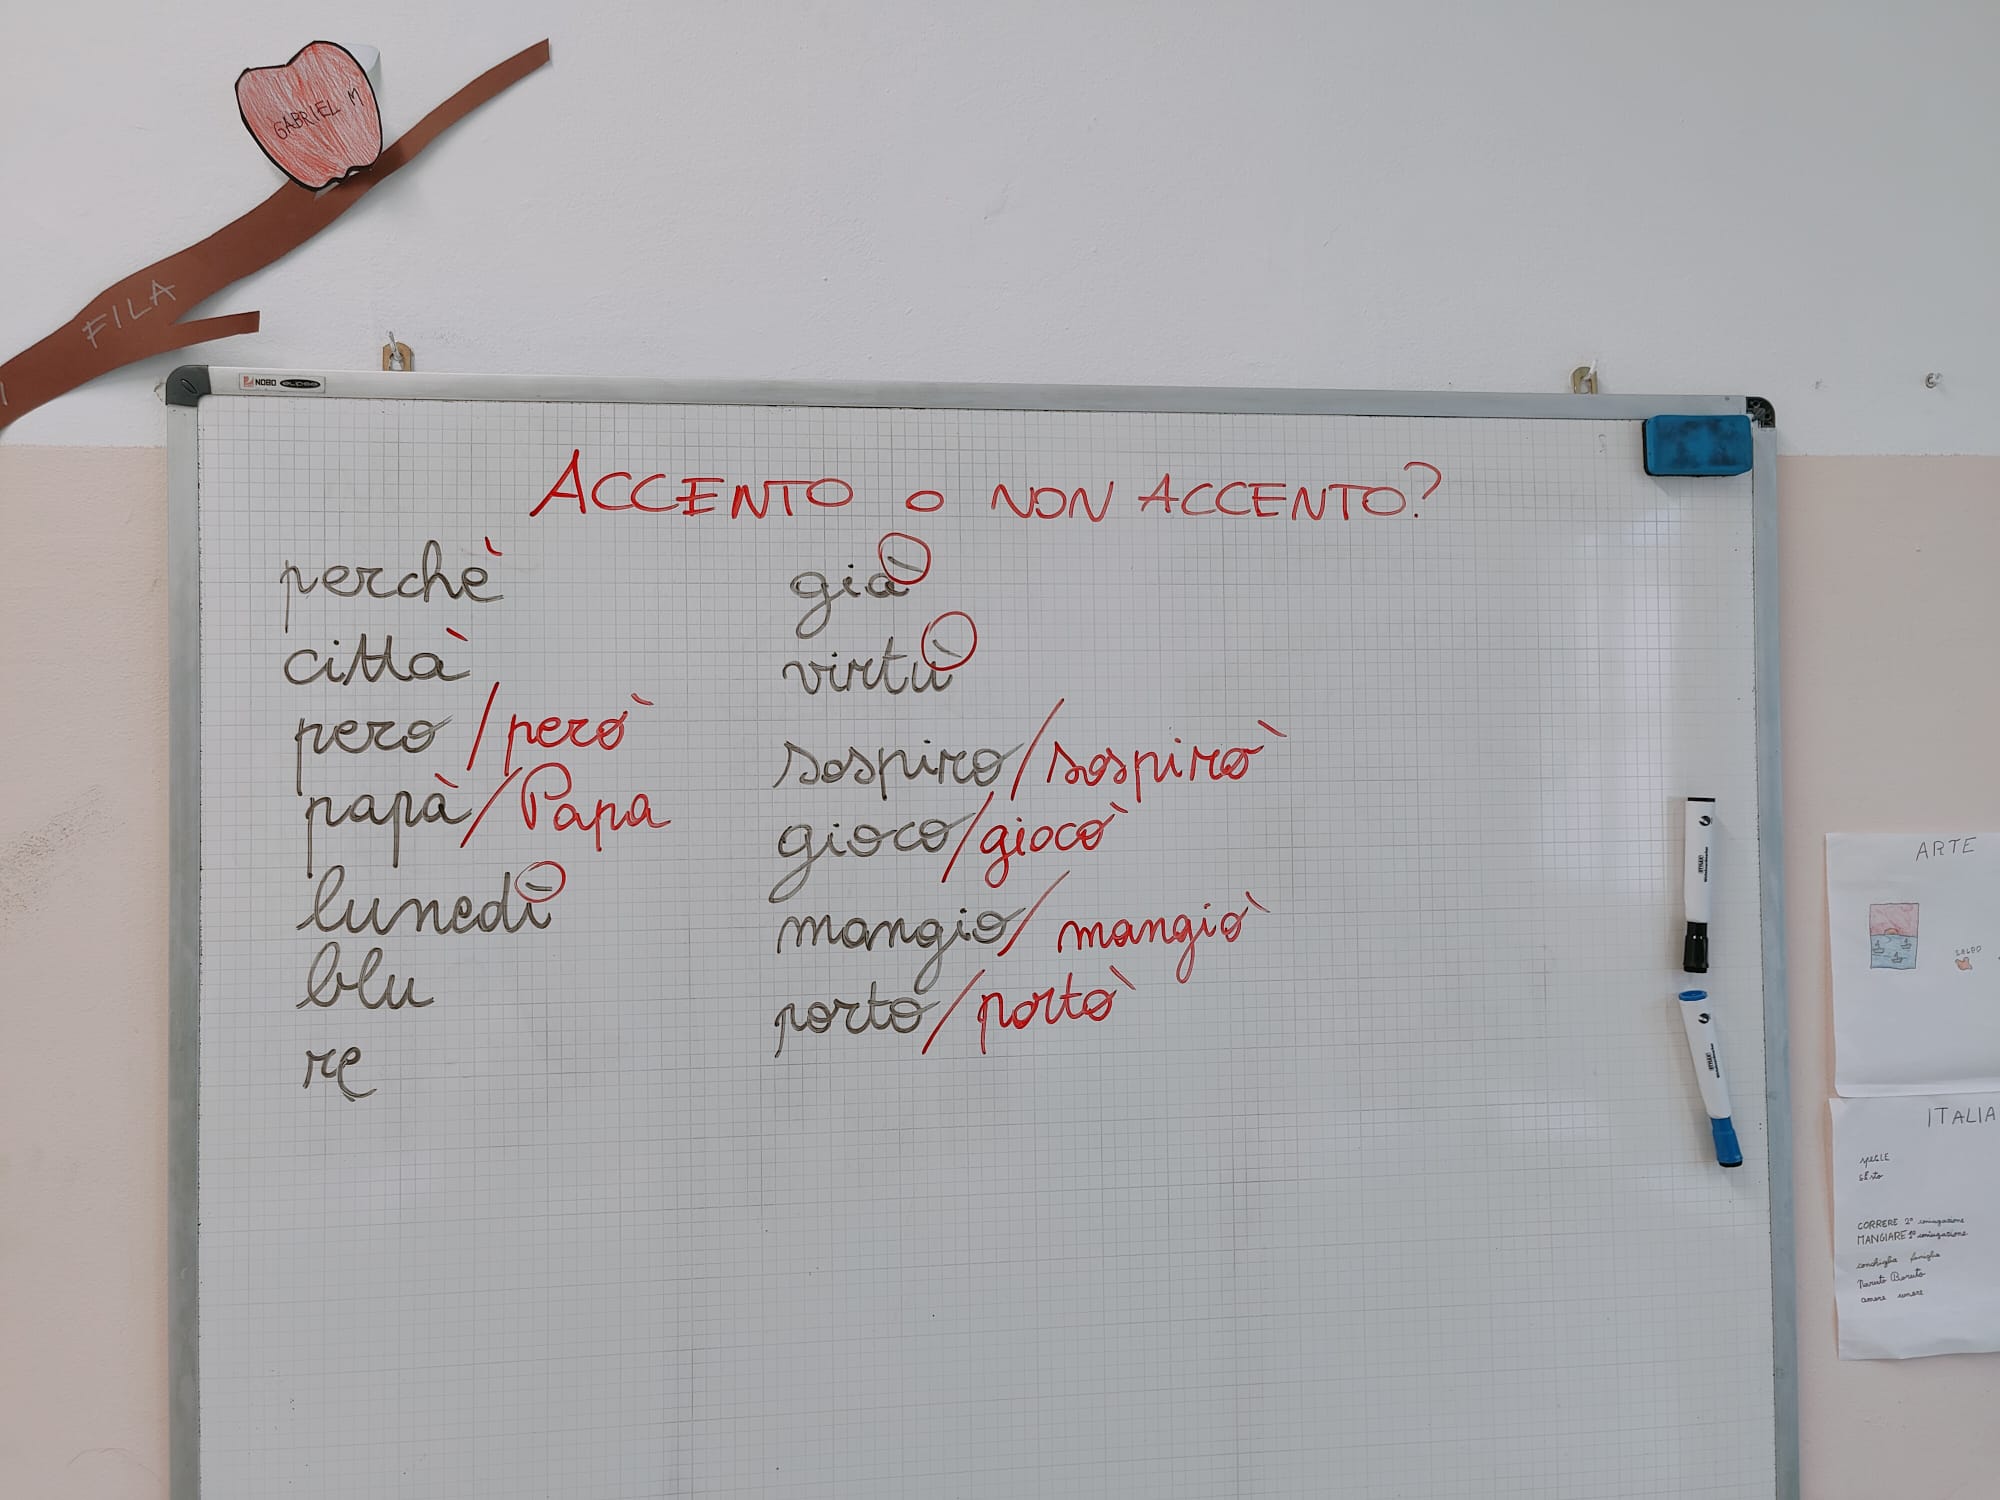 GABRIEL M
FILA
NOBO
ACCENTO O NON ACCENTO?
perchè
città
pero / però
papà / Papa
lunedì
blu
re
già
virtù
sospiro / sospirò
gioco / giocò
mangio / mangiò
porto / portò
ARTE
ITALIA
CORRERE 2° coniugazione
MANGIARE 1° coniugazione
conchiglia famiglia
Naruto Boruto